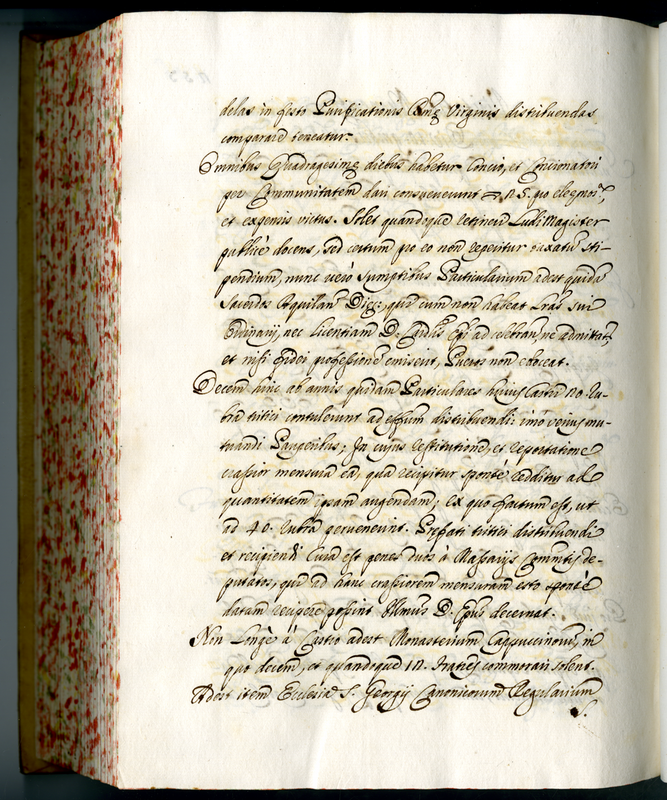 delas in festo Purificationis Bmę Virginis distribuendas
comparare teneatur.
Omnibus Quadragesimę diebus habetur Concio, et Concionatori
per Communitatem dari consueverunt 15. pro eleemos.
et expensis victus. Solet quandoque retineri Ludi Magister
publicè docens, sed certum pro eo non reperitur taxatum sti-
pendium, nunc verò sumptibus Particularium adest quidã
Sacerdos Aquilan Dięc, qui cum non habeat Lras sui
Ordinarij, nec licentiam D. Epi ad celebran, ne admittat,
et nisi fidei professionẽ emiserit, Pueros non edoceat.
Decem hinc ab annis quidam Particulares huius Castri 20. Ru-
bra tritici contulerunt ad effum distribuendi imò verius mu-
tuandi Pauperibus; In cuius restitutione, et reportatione
crassior mensura ea, qua recipitur spontè redditur ad
quantitatem ipsam augendam; ex quo factum est, ut
ad 40. Rubra pervenerint. Prefati tritici distribuendi
et recipiendi Cura est penes duos à Massarijs Commtis de-
putatos, qui ad hanc crassiorem mensuram esto spontè
datam recipere possint Illmus D. Epus decernat.
Non Longè à Castro adest Monasterium Cappuccinorum, in
quo decem, et quandoque 12. Fratres commorari solent.
Adest item Ecclesia S. Georgij Canonicorum Regularium
S.